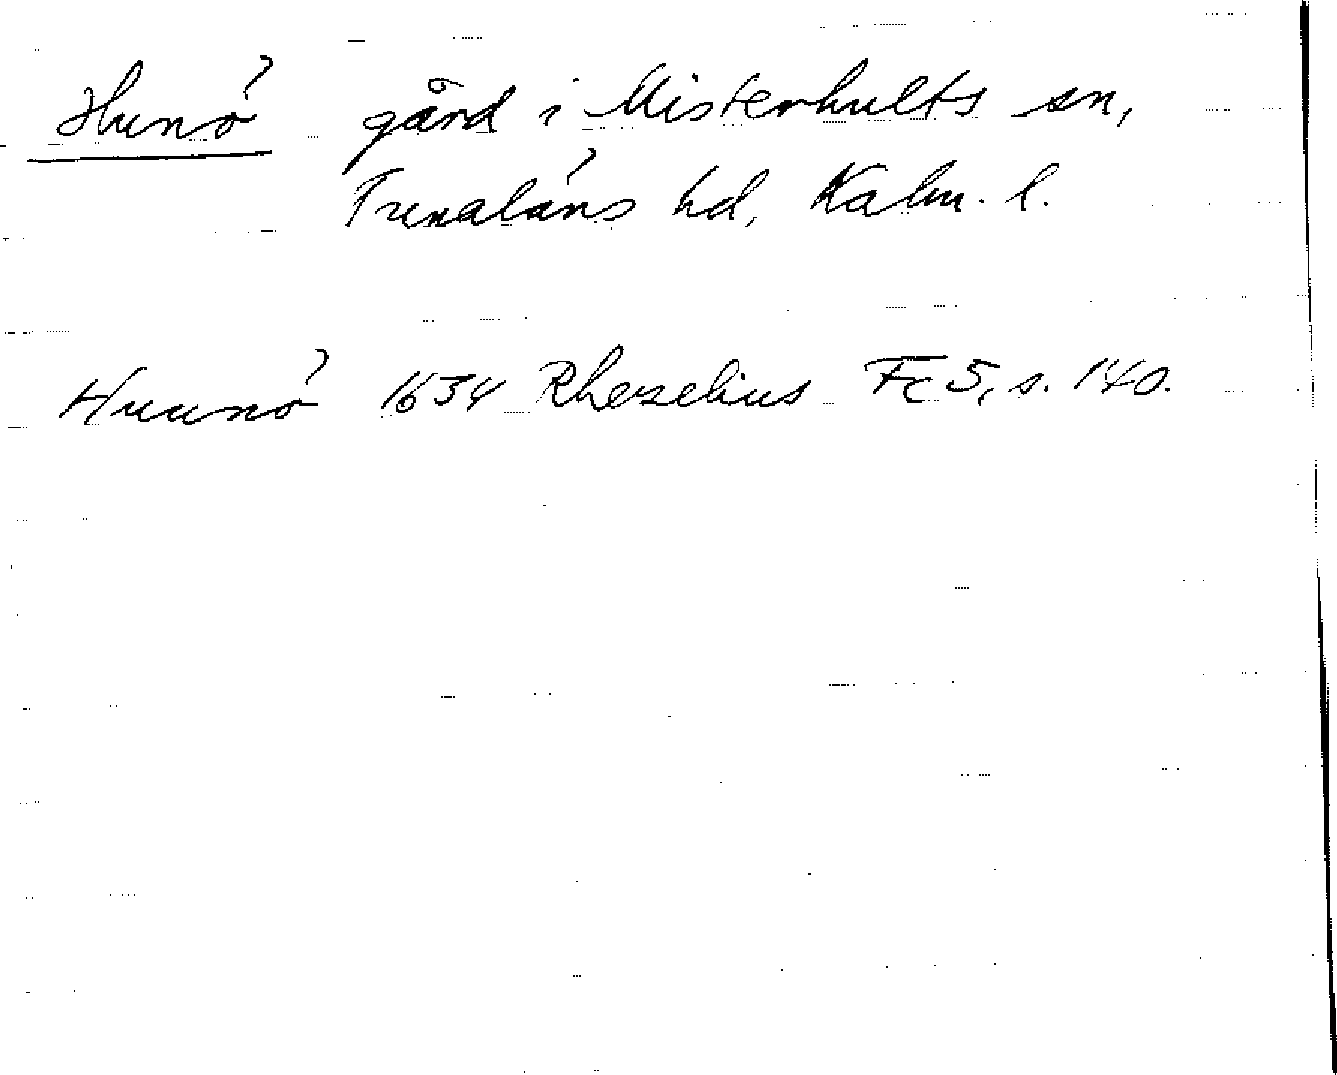 Hunö gård i Misterhults sn,
Tunaläns hd, Kalm. l.
Huunö 1634 Rhezelius Fc 5, s. 140.